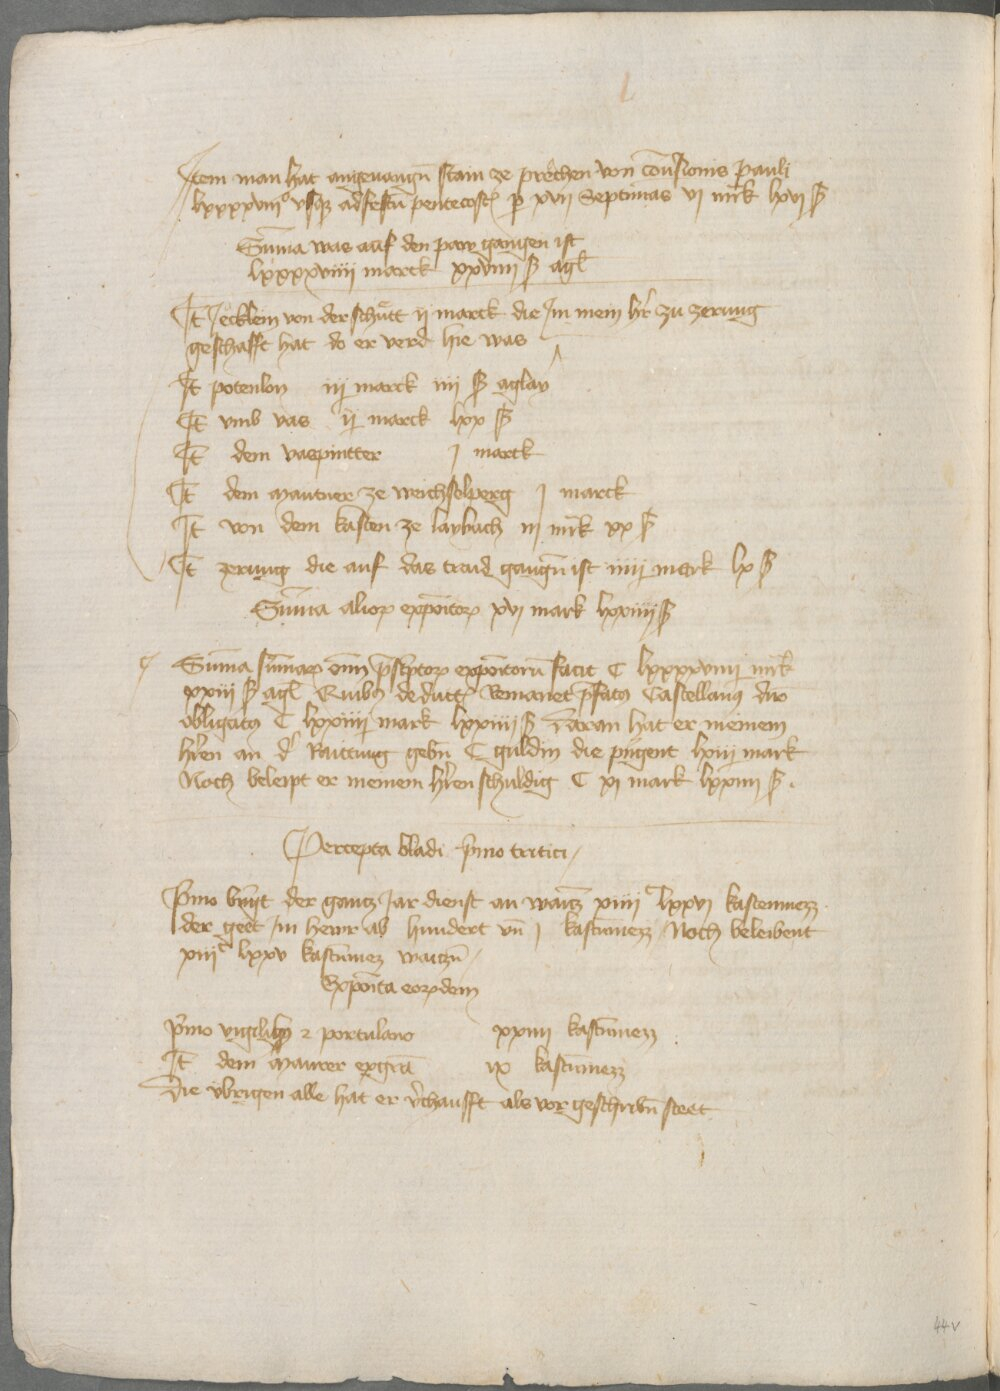 Item man hat angeuangn̄ stain ze prechen von conu̅sionis pauli
lxxxxviii° vsq₃ ad festu̅ pentecost̅ p̲ xvii septimas vi mrk lxvi ₰
Su̅ma was auf den paw gangen ist
lxxxxviiii marck xxviiii ₰ agl̅
It̅ Jecklein von der schütt ii marck die Im mein hr̅ zu zerung
geschafft hat do er verd hie was
It̅ potenlon iii marck iiii ₰ aglay
It̅ vmb vas ii marck lxx ₰
It̅ dem vaspintter j marck
It̅ dem Mautner ze weichselperg j marck
It̅ von dem kasten ze laybach iii mrk xx ₰
It̅ zerung die auf das traid gangn̄ ist iiii mark lx ₰
Su̅ma alior̲ expo̅itor̲ xvi mark lxxiiii ₰
Su̅ma su̅mar̲ om̅i p̅scptor̲ expo̅itoru̅ facit C lxxxxviiii mrk
xxiii ₰ agl̅ Quib₉ deduct̅ Remanet p̅fat₉ Castellan₉ dn̅o
obligat₉ C lxxiiii mark lxxiiii ₰ Daran hat er meinem
hr̅en an d̓ Raittung gebn̄ C guldin die pringent lxiii mark
Noch beleipt er meinem hr̅en schuldig C xi mark lxxiiii ₰ .
Percepta bladi p̅mo tritici
P̅mo bringt der gantz Jar dienst an waitz xiiii^c lxxvi kastenmezz
der geet In hewr ab hundert vn̄ j kastn̄mezz Noch beleibent
xiii^c lxxv kastn̄mez waitzn̄
Expo̅ita eor̲dem
P̅mo vigilib₉ ⁊ portulano xxiiii kastn̄mezz
It̅ dem Maurer ex gr̅a ix kastn̄mezz
Die vbrigen alle hat er v̓chaufft als vor geschribn̄ steet
44v